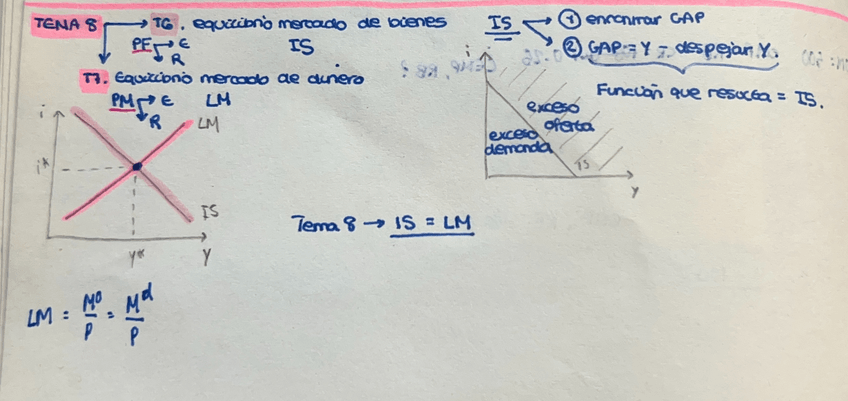 TEMA 8 → T6. equilibrio mercado de bienes
PE → E
→ R
IS
T7. Equilibrio mercado de dinero
PM → E
→ R
LM
i
LM
i*
IS
Y*
Y
IS → ① encontrar GAP
→ ② GAP = Y - despejar Y.
Función que resulta = IS.
i
exceso
oferta
exceso
demanda
IS
Y
Tema 8 → IS = LM
LM = Mº/P = Mᵈ/P